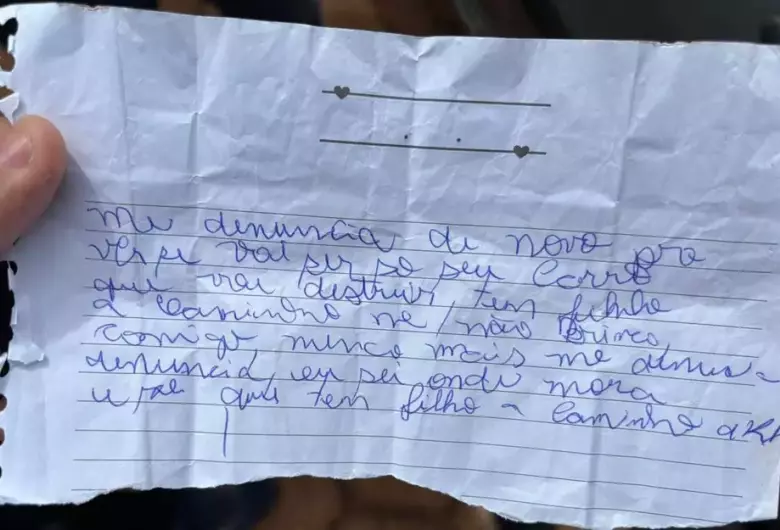 me denuncia de novo pra
ver se vai ser so seu Carro
que vai distruir, tem filho
a caminho né, não Brinca
comigo nunca mais me
denuncia, eu sei onde mora
e que tem filho a caminho